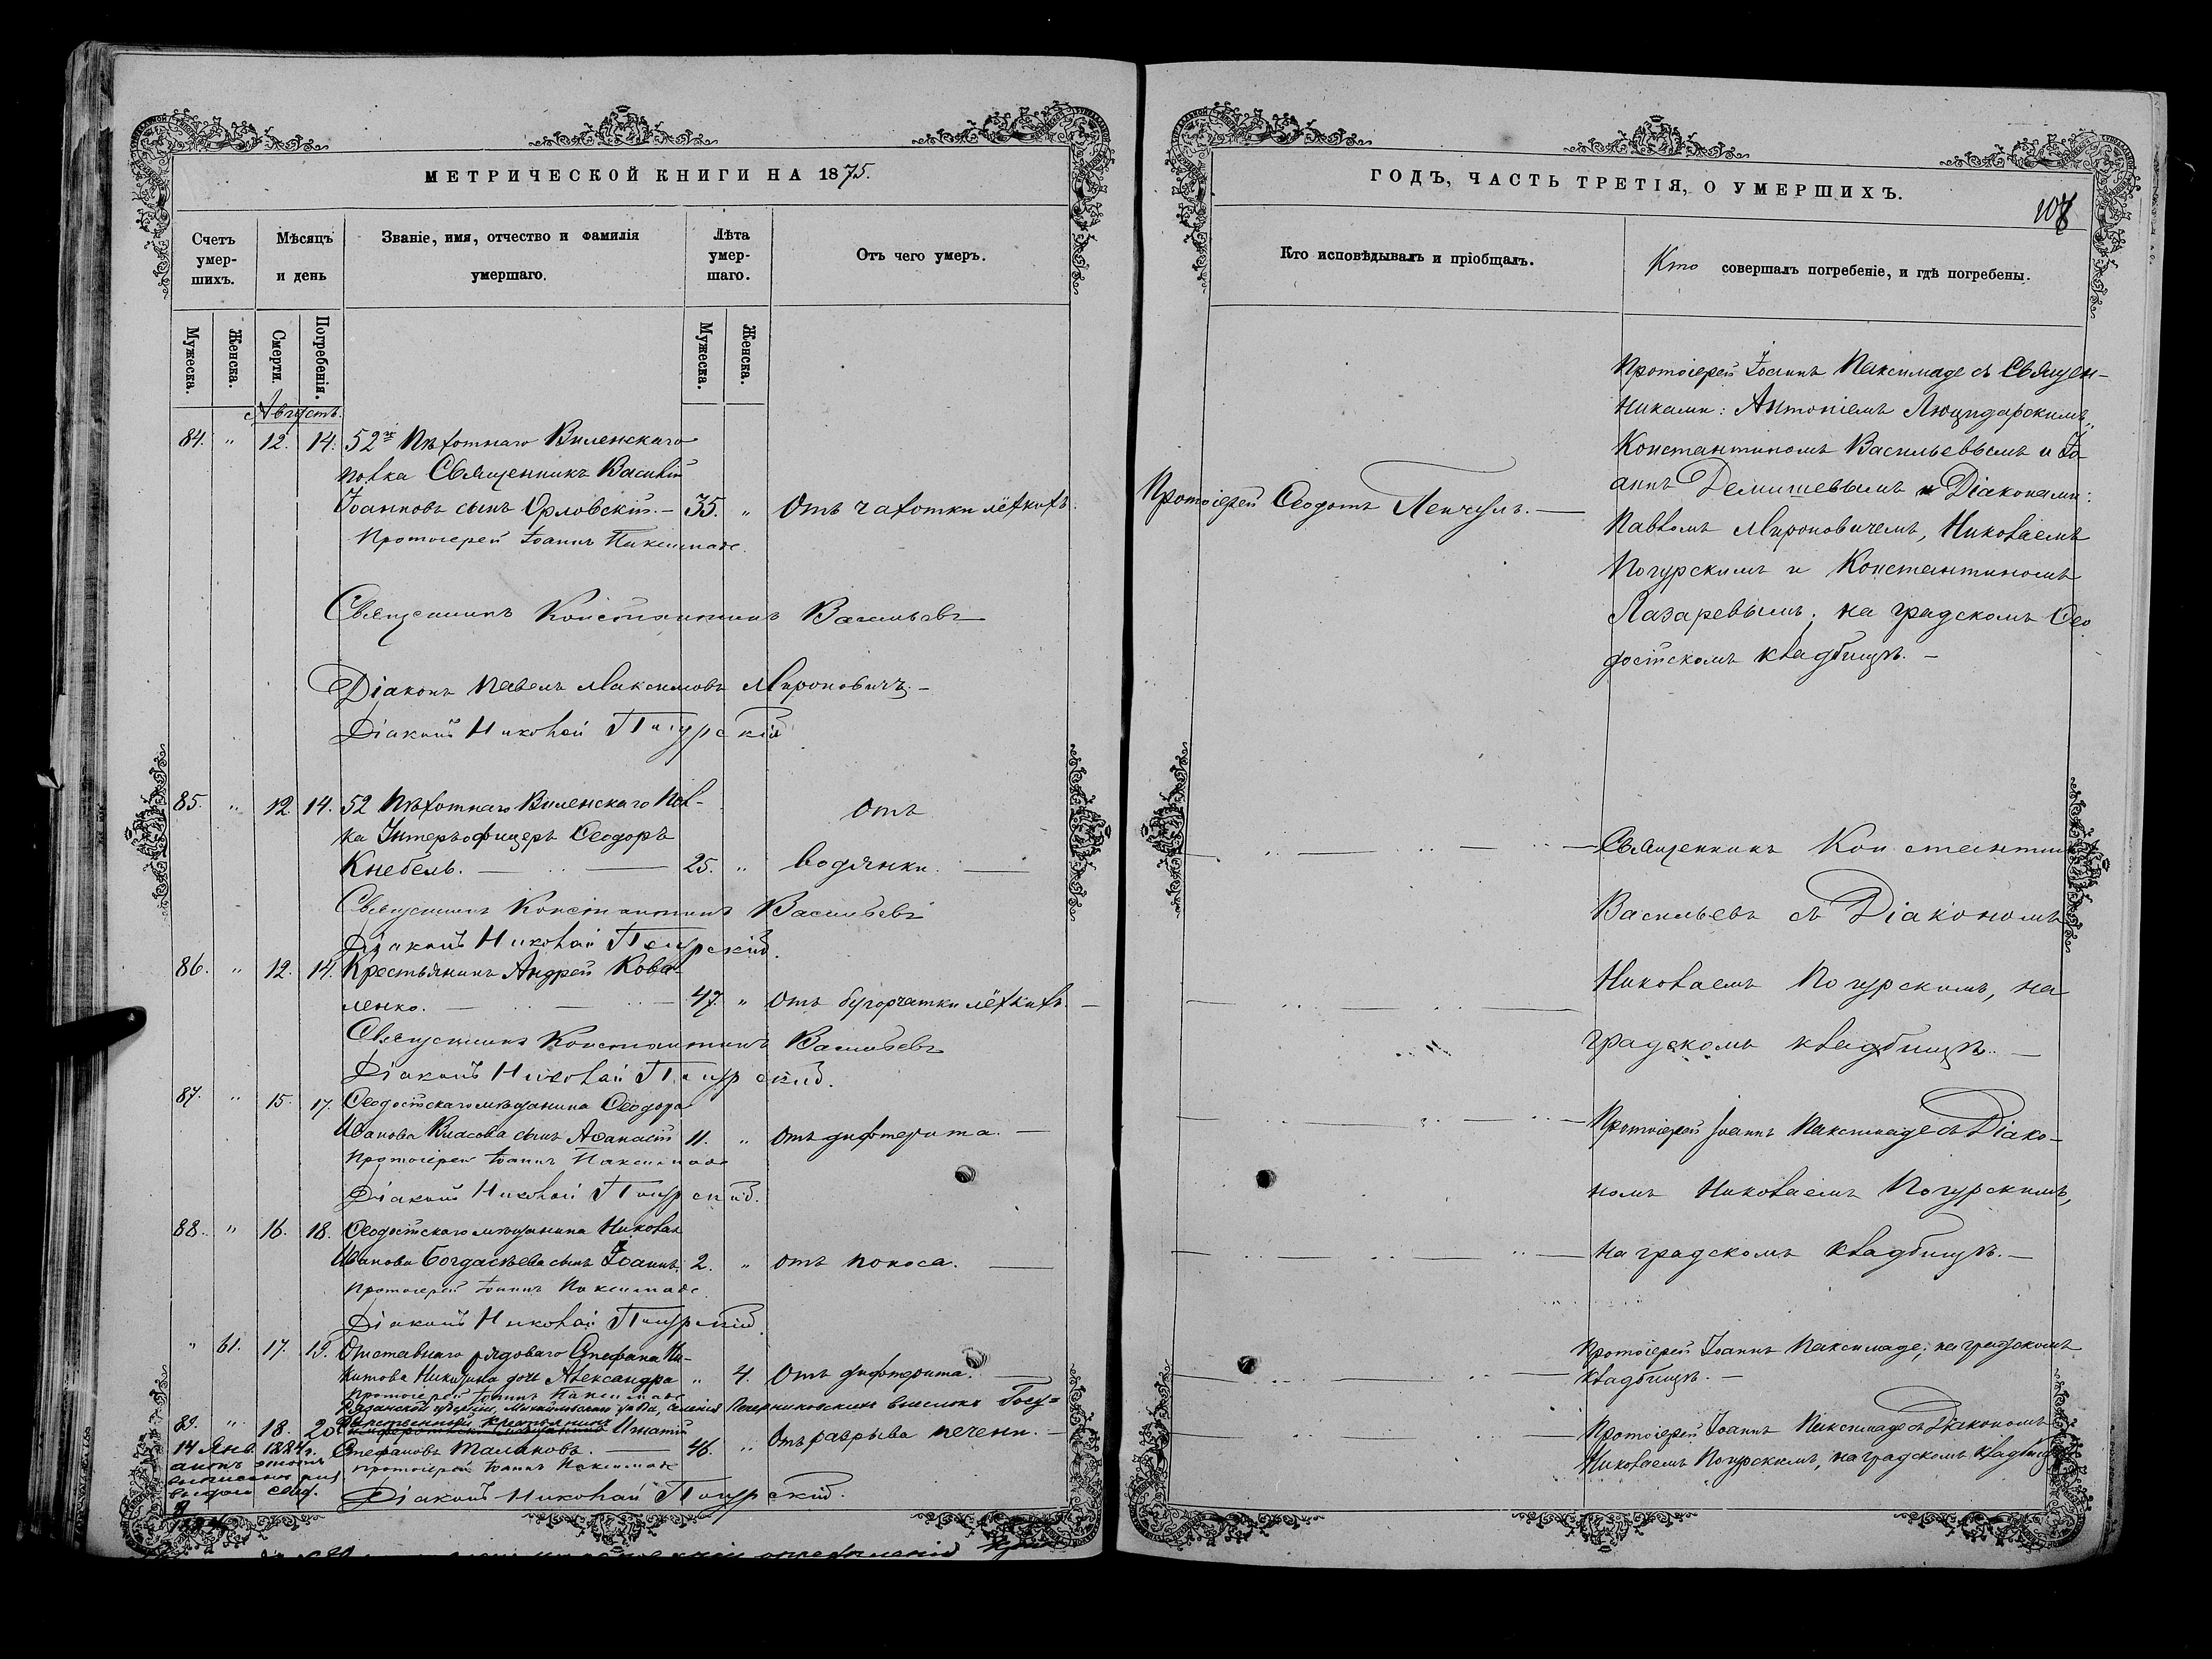 МЕТРИЧЕСКОЙ КНИГИ НА 1875.
Счетъ умер-шихъ.
Мѣсяцъ и день
Званіе, имя, отчество и фамилія умершаго.
Лѣта умер-шаго.
Отъ чего умеръ.
Мужеска.
Женска.
Смерти.
Погребенія.
Мужеска.
Женска.
Августъ.
84. " 12. 14. 52го Пѣхотнаго Виленскаго
полка Священникъ Василій
Іоанновъ сынъ Орловскій. — 35. " Отъ чахотки лёгкихъ.
Протоіерей Іоаннъ Паксимаде.
Священникъ Константинъ Васильевъ
Діаконъ Павелъ Максимовъ Мироновичъ. —
Діаконъ Николай Погурскій
85. " 12. 14. 52 Пѣхотнаго Виленскаго Пол-
ка Унтеръофицеръ Ѳеодоръ
Кнебель. — 25. " Отъ водянки. —
Священникъ Константинъ Васильевъ
Діаконъ Николай Погурскій.
86. " 12. 14. Крестьянинъ Андрей Кова-
ленко. — 47. " Отъ бугорчатки лёгкихъ. —
Священникъ Константинъ Васильевъ
Діаконъ Николай Погурскій.
87. " 15. 17. Ѳеодосійскаго мѣщанина Ѳеодора
Иванова Власова сынъ Аѳанасій 11. " Отъ дифтерита. —
Протоіерей Іоаннъ Паксимаде
Діаконъ Николай Погурскій.
88. " 16. 18. Ѳеодосійскаго мѣщанина Николая
Иванова Богдасѣева сынъ Іоаннъ. 2. " отъ поноса. —
Протоіерей Іоаннъ Паксимаде.
Діаконъ Николай Погурскій.
" 61. 17. 19. Отставнаго рядоваго Стефана Ни-
китова Никитина дочь Александра " 4. Отъ дифтерита. —
Протоіерей Іоаннъ Паксимаде
Рязанской губерніи, Михайловскаго уѣзда, селенія Печерниковскихъ выселокъ Госу=
дарственный крестьянинъ
89. " 18. 20. Игнатій
Стефановъ Талановъ. — 46. " Отъ разрыва печени. —
Протоіерей Іоаннъ Паксимаде
Діаконъ Николай Погурскій.
14 Янв. 1884г.
актъ этотъ
выписанъ
выдано свид.
ГОДЪ, ЧАСТЬ ТРЕТІЯ, О УМЕРШИХЪ.
Кто исповѣдывалъ и пріобщалъ.
Кто совершалъ погребеніе, и гдѣ погребены.
Протоіерей Ѳеодотъ Ленчулъ. —
Протоіерей Іоаннъ Паксимаде съ Священ-
никами: Антоніемъ Люцидарскимъ,
Константиномъ Васильевымъ и Іо-
анн. Демишевымъ и Діаконами:
Павломъ Мироновичемъ, Николаемъ
Погурскимъ и Константиномъ
Лазаревымъ; на градскомъ Ѳео
досійскомъ кладбищѣ. —
Священникъ Константинъ
Васильевъ съ Діакономъ
Николаемъ Погурскимъ, на
градскомъ кладбищѣ. —
Протоіерей Іоаннъ Паксимаде съ Діако-
номъ Николаемъ Погурскимъ,
на градскомъ кладбищѣ. —
Протоіерей Іоаннъ Паксимаде; на градскомъ
кладбищѣ. —
Протоіерей Іоаннъ Паксимаде съ Діакономъ
Николаемъ Погурскимъ, на градскомъ кладбищѣ